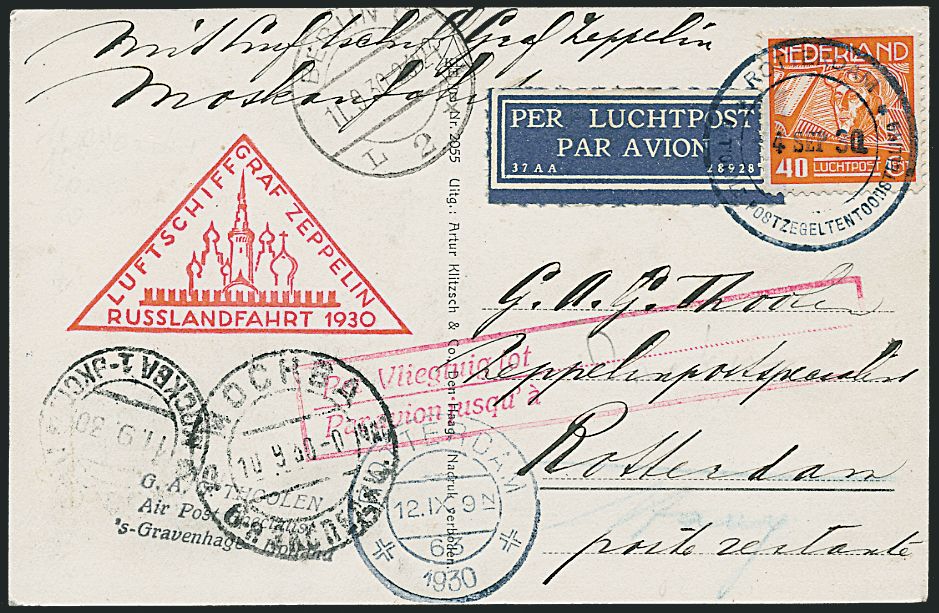 Mit Luftschiff Graf Zeppelin
Moskau
BERLIN C
11.9.30.
L 2
NEDERLAND
40 LUCHTPOST
ROTTERDAM
4 SEP 30
POSTZEGELTENTOONSTELLING
PER LUCHTPOST
PAR AVION
37 A A. 28928
LUFTSCHIFF GRAF ZEPPELIN
RUSSLANDFAHRT 1930
Nr. 2055 Uitg.: Artur Klitzsch & Co., Den Haag. Nadruk verboden.
G. A. G. Thoolen
Zeppelinpostspecialist
Rotterdam
poste restante
Per Vliegtuig tot
Par avion jusqu'à
МОСКВА
11.9.30
МОСКВА
10 9 30
G. A. G. THOOLEN
Air Post Specialist
's-Gravenhage Holland
ROTTERDAM
12.IX 9
1930